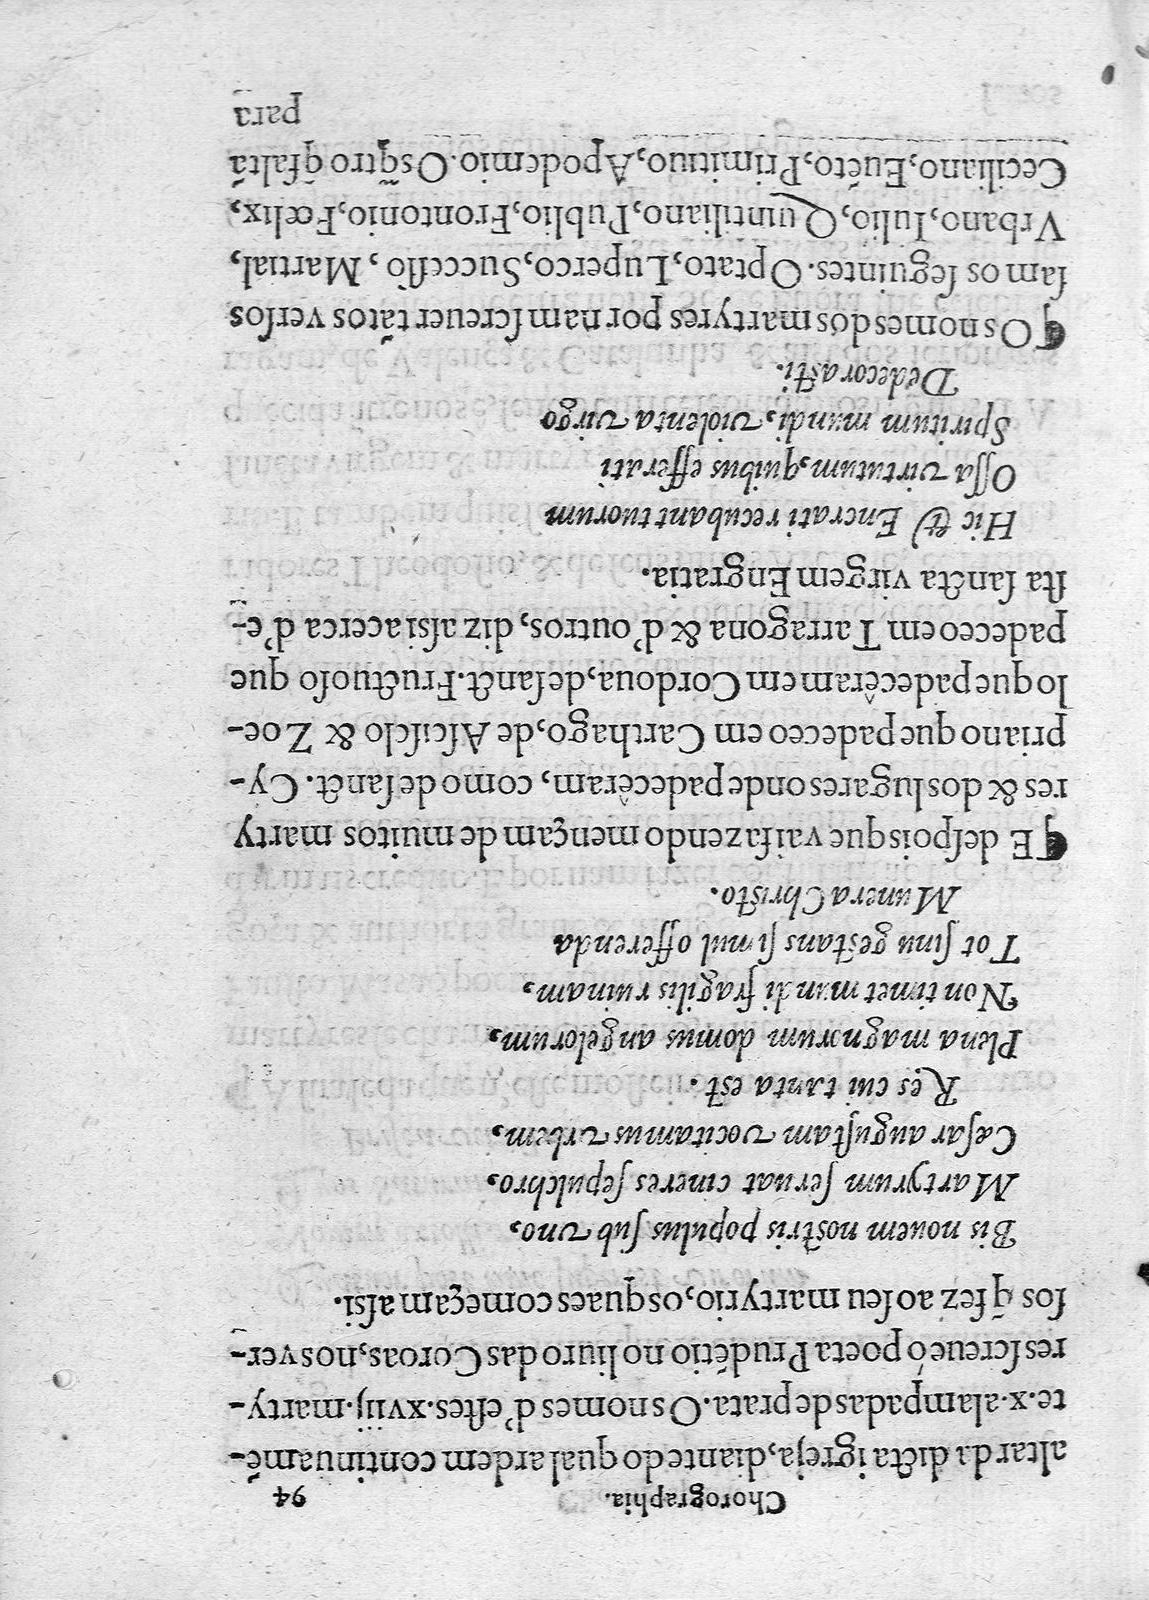 Chorographia. 94
altar da dicta igreja, diante do qual ardem continuamē-
te .x. alampadas de prata. Os nomes d'estes .xviij. marty-
res screueo ó poeta Prudētio no liuro das Coroas, nos ver-
sos q̃ fez ao seu martyrio, os quaes começam assi.
Bis nouem nostris populus sub vno,
Martyrum seruat cineres sepulchro,
Cæsar augustam vocitamus vrbem,
Res cui tanta est.
Plena magnorum domus angelorum,
Non timet mundi fragilis ruinam,
Tot sinu gestans simul offerenda
Munera Christo.
¶ E despois que vai fazendo mençam de muitos marty
res & dos lugares onde padecêram, como de sanct. Cy-
priano que padeceo em Carthago, de Ascisclo & Zoe-
lo que padecêram em Cordoua, de sanct. Fructuoso que
padeceo em Tarragona & d'outros, diz assi acerca d'e-
sta sancta virgem Engratia.
Hic & Encrati recubant tuorum
Ossa virtutum, quibus efferati
Spiritum mundi, violenta virgo
Dedecorasti.
¶ Os nomes dos martyres por nam screuer tātos versos
sam os seguintes. Optato, Luperco, Successo, Martial,
Vrbano, Iulio, Quintiliano, Publio, Frontonio, Fœlix,
Ceciliano, Euēto, Primitiuo, Apodemio. Os q̃tro q̃ faltā
para